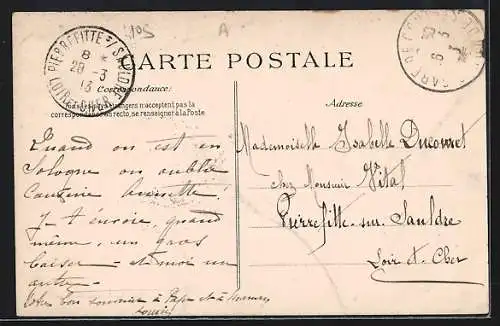 A
PIERREFITTE S/ SAULDRE
8
20 - 3
13
LOIR-ET-CHER
GARE DE
CARTE POSTALE
Correspondance
étrangers n'acceptent pas la
correspondance au recto, se renseigner à la Poste
Adresse
Quand on est en
Sologne on oublie
Cousine
J-t'envoie quand
même, un gros
baiser - et moi un
autre
bon souvenir à Papa et à Maman
Mademoiselle Isabelle Ducouret
chez Monsieur Vital
Pierrefitte-sur-Sauldre
Loir-et-Cher